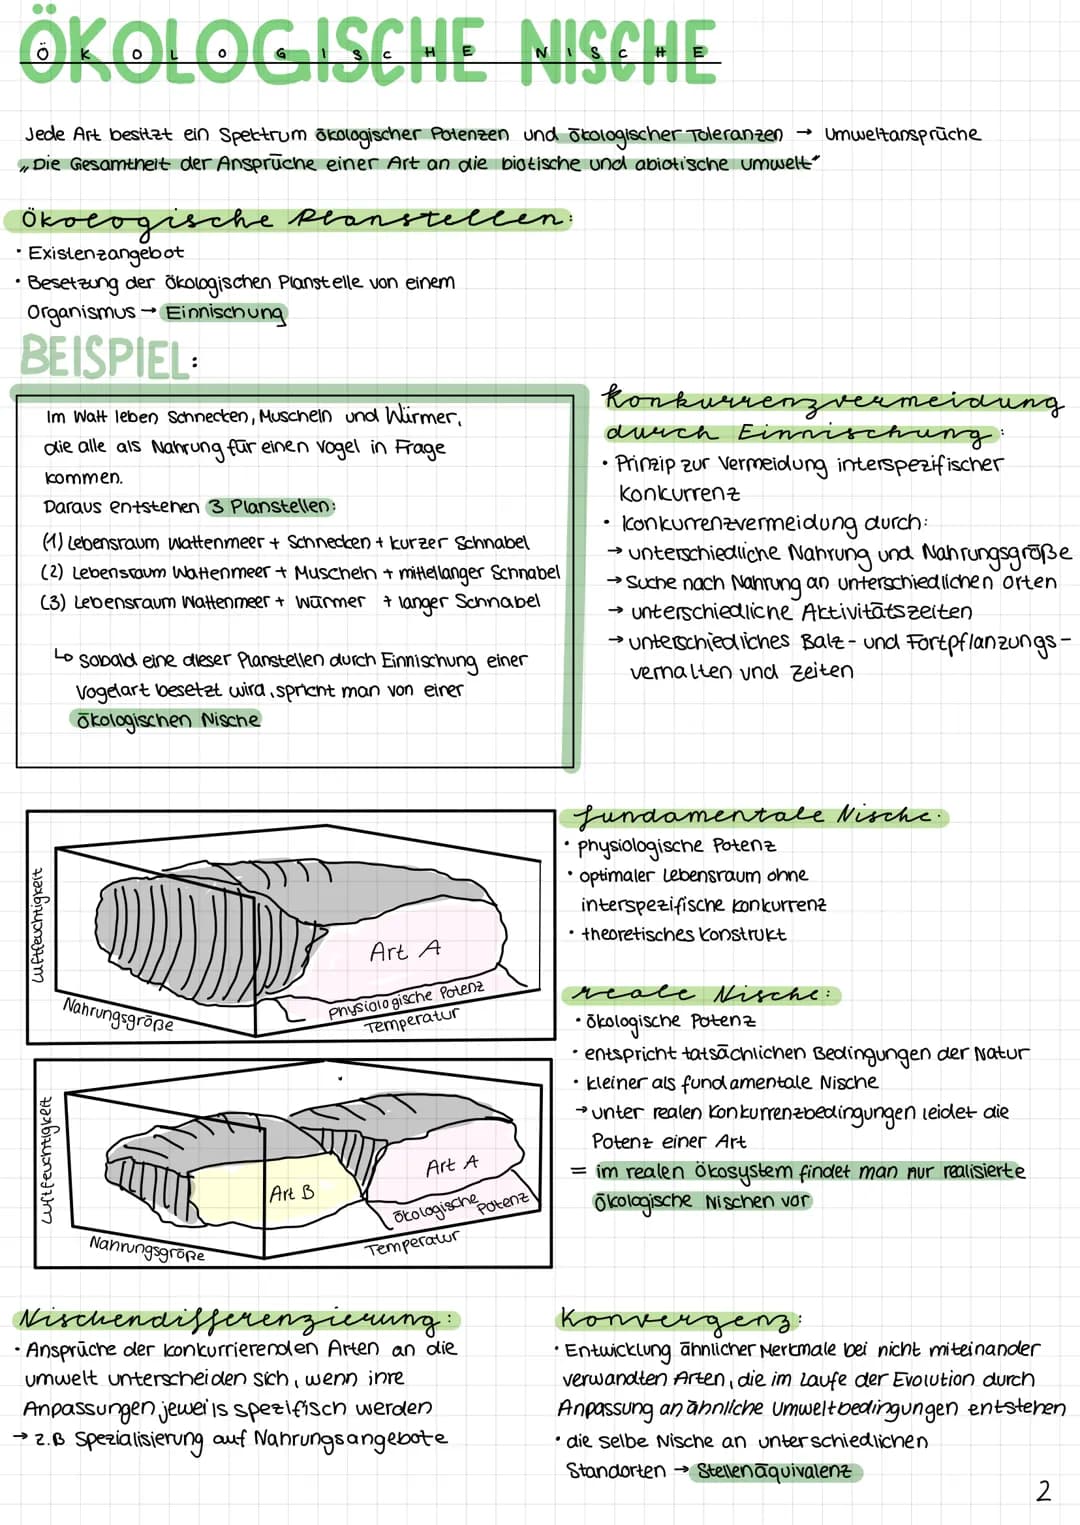 ÖKOLOGISCHE NISCHE
ÖKOLOGISCHE NISCHE
Jede Art besitzt ein Spektrum ökologischer Potenzen und ökologischer Toleranzen → Umweltansprüche
„Die Gesamtheit der Ansprüche einer Art an die biotische und abiotische Umwelt"
Ökologische Planstellen:
· Existenzangebot
· Besetzung der ökologischen Planstelle von einem
Organismus → Einnischung
BEISPIEL:
Im Watt leben Schnecken, Muscheln und Würmer,
die alle als Nahrung für einen Vogel in Frage
kommen.
Daraus entstehen 3 Planstellen:
(1) Lebensraum Wattenmeer + Schnecken + kurzer Schnabel
(2) Lebensraum Wattenmeer + Muscheln + mittellanger Schnabel
(3) Lebensraum Wattenmeer + Würmer + langer Schnabel
↳ Sobald eine dieser Planstellen durch Einnischung einer
Vogelart besetzt wird, spricht man von einer
ökologischen Nische
Konkurrenzvermeidung
durch Einnischung:
· Prinzip zur Vermeidung interspezifischer
Konkurrenz
· Konkurrenzvermeidung durch:
→ unterschiedliche Nahrung und Nahrungsgröße
→ Suche nach Nahrung an unterschiedlichen Orten
→ unterschiedliche Aktivitätszeiten
→ unterschiedliches Balz- und Fortpflanzungs-
verhalten und Zeiten
Luftfeuchtigkeit
Nahrungsgröße
Art A
Physiologische Potenz
Temperatur
fundamentale Nische:
· physiologische Potenz
· optimaler Lebensraum ohne
interspezifische Konkurrenz
· theoretisches Konstrukt
reale Nische:
· ökologische Potenz
· entspricht tatsächlichen Bedingungen der Natur
· kleiner als fundamentale Nische
→ unter realen Konkurrenzbedingungen leidet die
Potenz einer Art
= im realen Ökosystem findet man nur realisierte
ökologische Nischen vor
Luftfeuchtigkeit
Nahrungsgröße
Art B
Art A
ökologische Potenz
Temperatur
Nischendifferenzierung:
· Ansprüche der konkurrierenden Arten an die
Umwelt unterscheiden sich, wenn ihre
Anpassungen jeweils spezifisch werden
→ z.B Spezialisierung auf Nahrungsangebote
Konvergenz:
· Entwicklung ähnlicher Merkmale bei nicht miteinander
verwandten Arten, die im Laufe der Evolution durch
Anpassung an ähnliche Umweltbedingungen entstehen
· die selbe Nische an unterschiedlichen
Standorten → Stellenäquivalenz
2